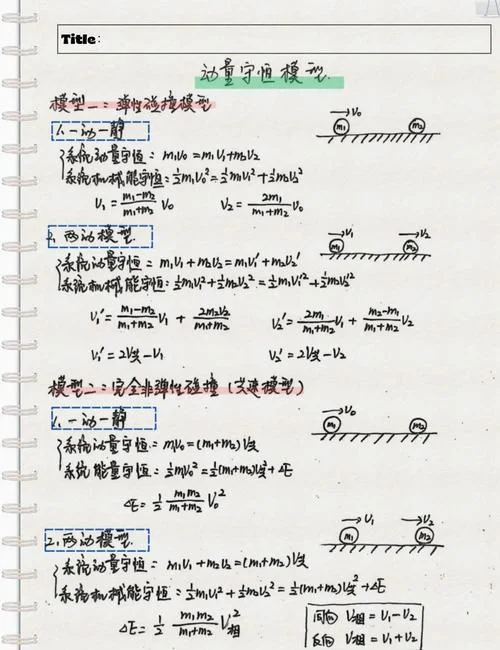 Title:
动量守恒模型.
模型一:弹性碰撞模型
1.一动一静
m₁ m₂ V₀
系统动量守恒: m₁V₀=m₁V₁+m₂V₂
系统机械能守恒:½m₁V₀²=½m₁V₁²+½m₂V₂²
V₁=(m₁-m₂)/(m₁+m₂) V₀ V₂=2m₁/(m₁+m₂) V₀
2.两动模型.
m₁ m₂ V₁ V₂
系统动量守恒: m₁V₁+m₂V₂=m₁V₁'+m₂V₂'
系统机械能守恒:½m₁V₁²+½m₂V₂²=½m₁V₁'²+½m₂V₂'²
V₁'=(m₁-m₂)/(m₁+m₂) V₁ + 2m₂V₂/(m₁+m₂) V₂'=2m₁/(m₁+m₂) V₁ + (m₂-m₁)/(m₁+m₂) V₂
V₁'=2V共-V₁ V₂'=2V共-V₂
模型二:完全非弹性碰撞(共速模型)
1.一动一静
m₁ m₂ V₀
系统动量守恒: m₁V₀=(m₁+m₂)V共
系统能量守恒:½m₁V₀²=½(m₁+m₂)V共²+ΔE
ΔE=½ m₁m₂/(m₁+m₂) V₀²
2.两动模型.
m₁ m₂ V₁ V₂
系统动量守恒: m₁V₁+m₂V₂=(m₁+m₂)V共
系统机械能守恒:½m₁V₁²+½m₂V₂²=½(m₁+m₂)V共²+ΔE
ΔE=½ m₁m₂/(m₁+m₂) V相²
同向 V相=V₁-V₂
反向 V相=V₁+V₂